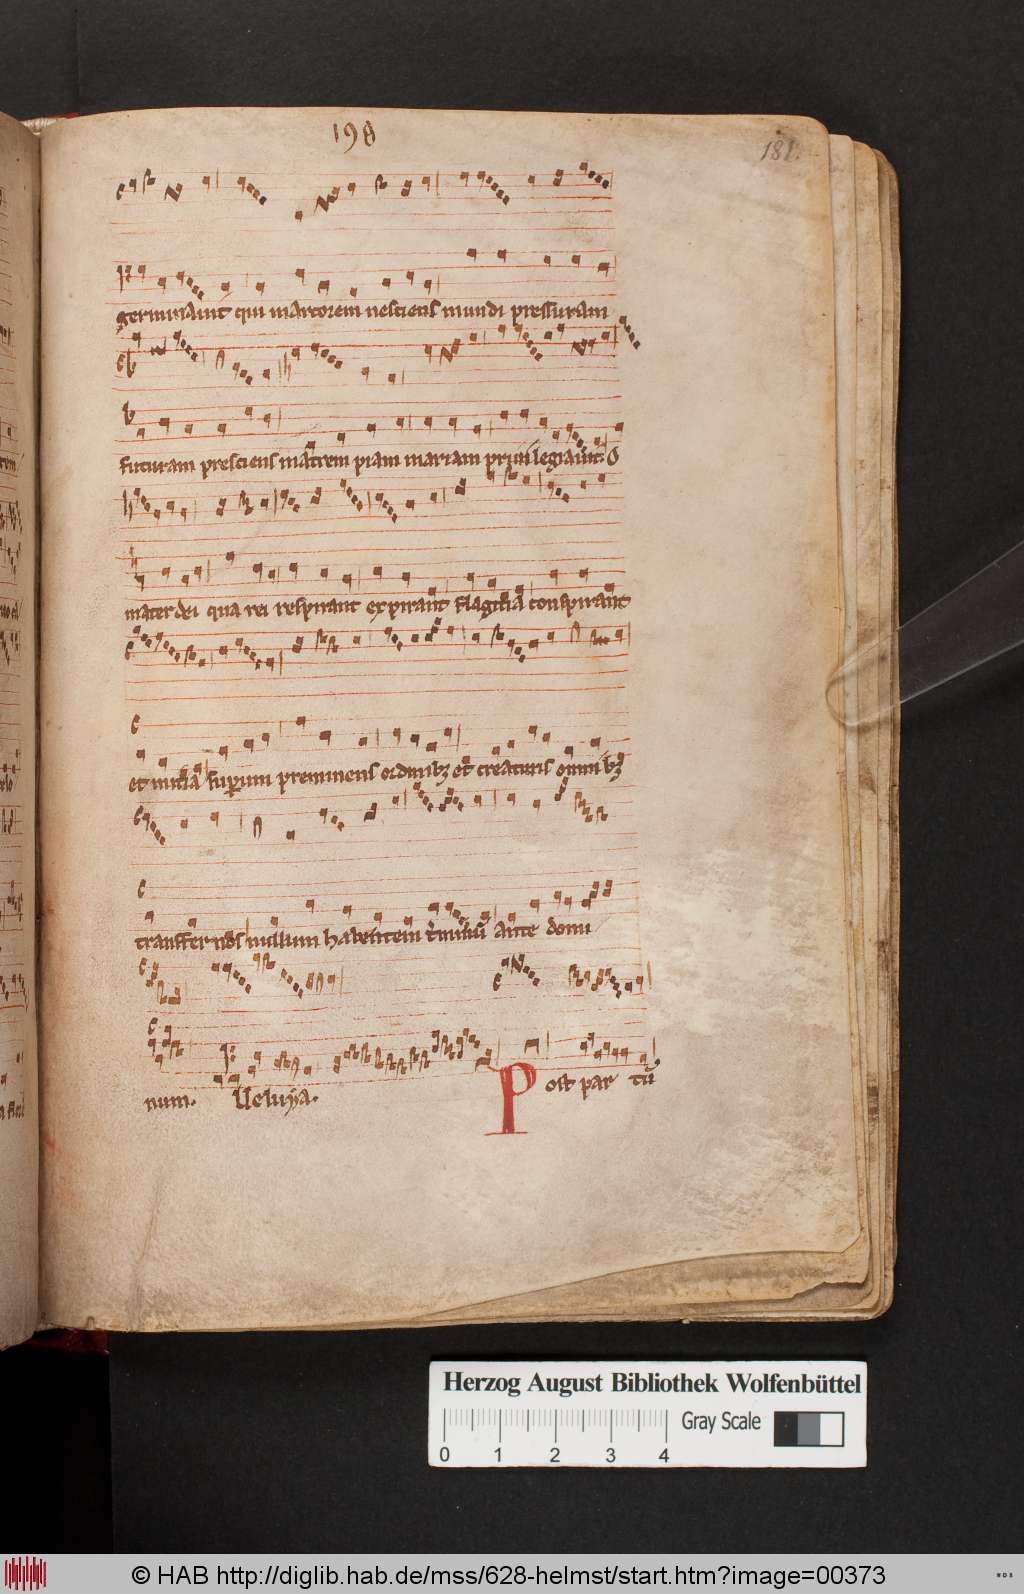 198
181.
germinavit qui martorem nesciens mundi pressuram
futuram presciens matrem piam mariam privilegiavit. O
mater dei qua rei respirant expirant flagitia conspirant
et initia superum preminens ordinibꝫ et creaturis omnibꝫ
transfer nos nullum habentem tminū ante domi
num. lleluya. Post par tū
Herzog August Bibliothek Wolfenbüttel
Gray Scale
0 1 2 3 4
© HAB http://diglib.hab.de/mss/628-helmst/start.htm?image=00373